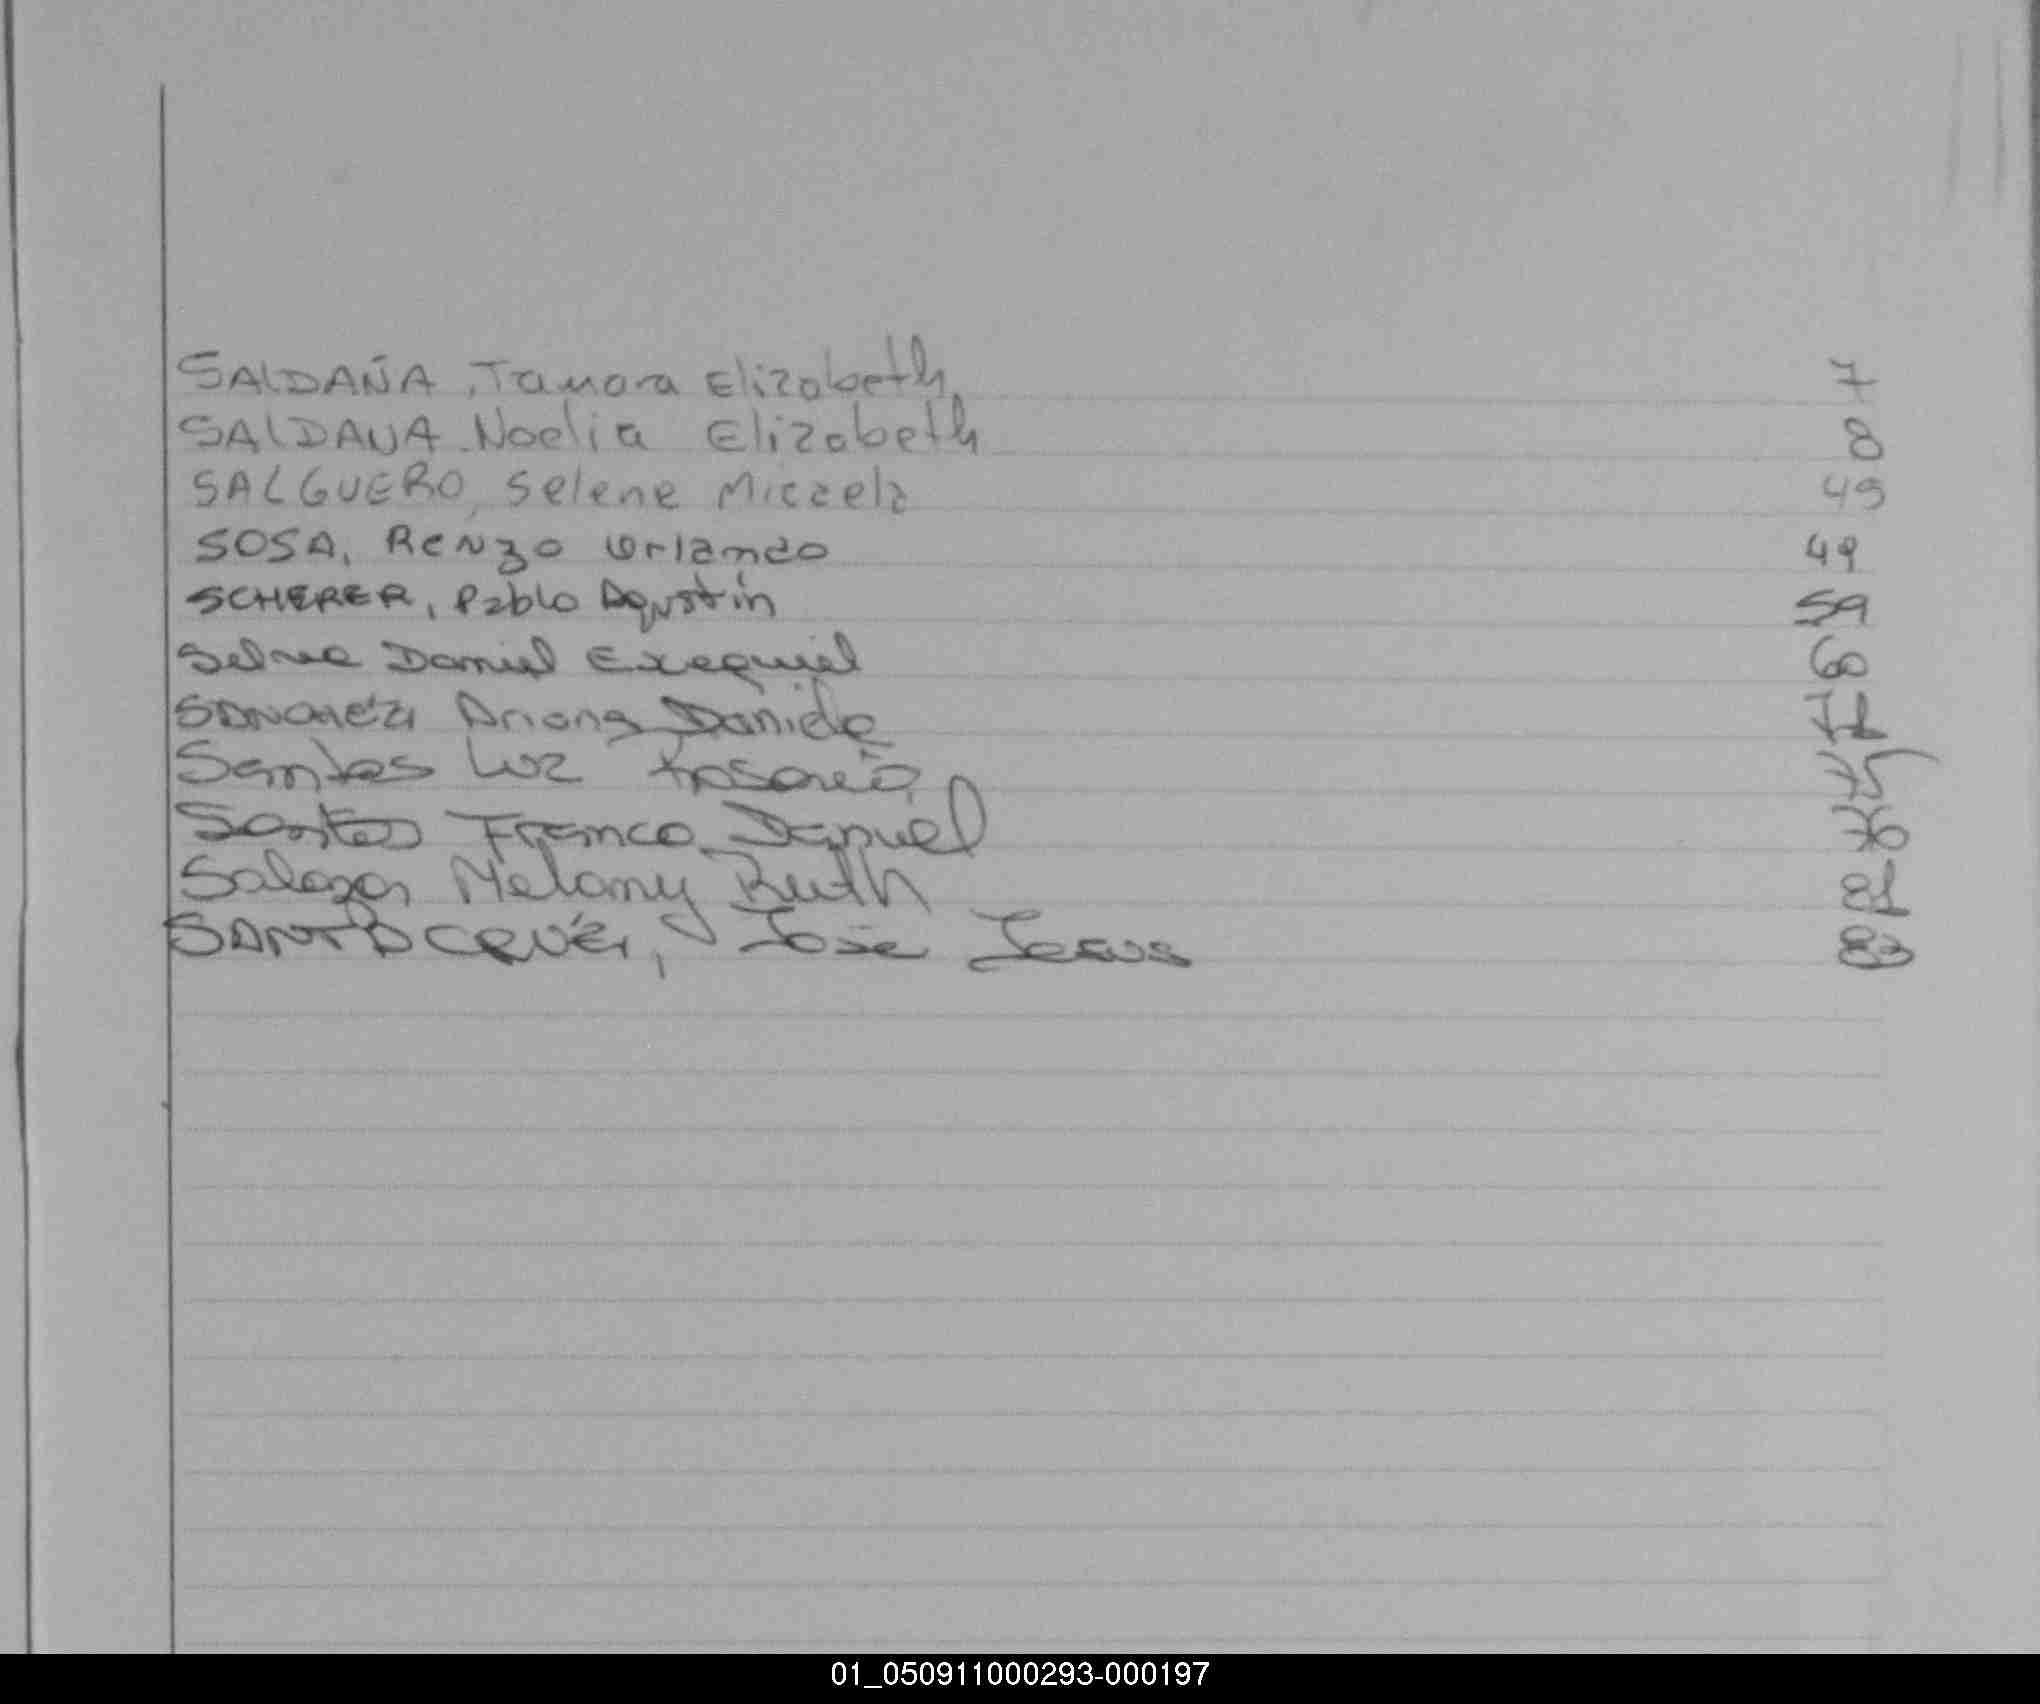 SALDAÑA, Tamara Elizabeth 7
SALDAÑA Noelia Elizabeth 8
SALGUERO, Selene Micaela 49
SOSA, Renzo Orlando 49
SCHERER, Pablo Agustín 59
Selva Daniel Exequiel 60
SANCHEZ Ariana Daniela 71
Santos Luz Rosario 75
Santos Franco Daniel 76
Salazar Melany Ruth 81
José Jesus 83
01_050911000293-000197